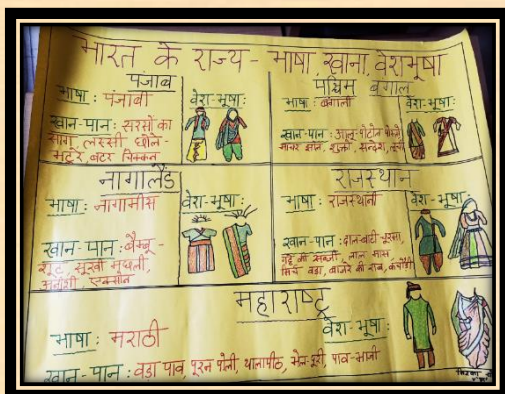 भारत के राज्य - भाषा, खाना, वेशभूषा
पंजाब
भाषा : पंजाबी
वेश-भूषा :
खान-पान : सरसों का
साग, लस्सी, छोले-
बटर चिक्कन
पश्चिम बंगाल
भाषा : बंगाली
वेश-भूषा :
खान-पान : आलू-
माचर झोल, शुक्तो, सन्देश,
नागालैंड
भाषा : नागामीस
वेश-भूषा :
खान-पान : बैम्बू -
शूट, सूखी मछली,
राजस्थान
भाषा : राजस्थानी
वेश-भूषा :
खान-पान : दाल-बाटी-चूरमा,
गट्टे की सब्जी, लाल मास
मिर्च वड़ा, बाजरे की राब, कचौड़ी
महाराष्ट्र
भाषा : मराठी
वेश-भूषा :
खान-पान : वड़ा पाव, पूरन पोली, थालीपीठ, भेल-पूरी, पाव-भाजी